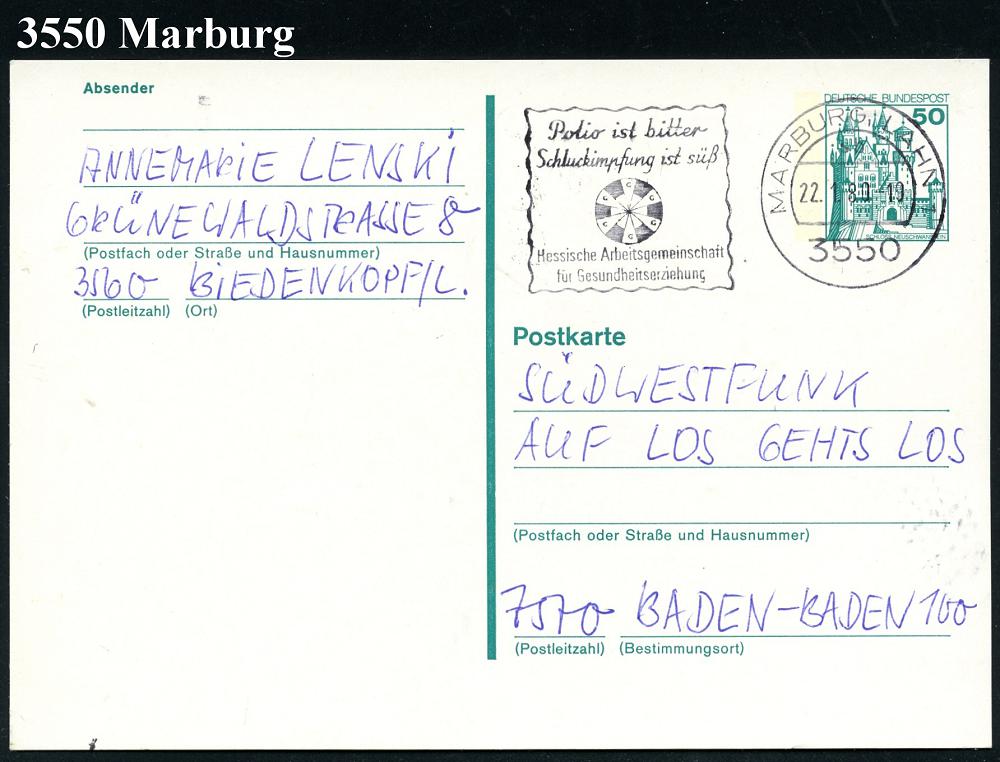 3550 Marburg
Absender
ANNEMARIE LENSKI
GRÜNEWALDSTRASSE 8
(Postfach oder Straße und Hausnummer)
3560 BIEDENKOPF/L.
(Postleitzahl) (Ort)
Polio ist bitter
Schluckimpfung ist süß
Hessische Arbeitsgemeinschaft
für Gesundheitserziehung
DEUTSCHE BUNDESPOST
50
SCHLOSS NEUSCHWANSTEIN
MARBURG, LAHN 1
22.1.80-19
3550
Postkarte
SÜDWESTFUNK
AUF LOS GEHTS LOS
(Postfach oder Straße und Hausnummer)
7570 BADEN-BADEN 100
(Postleitzahl) (Bestimmungsort)